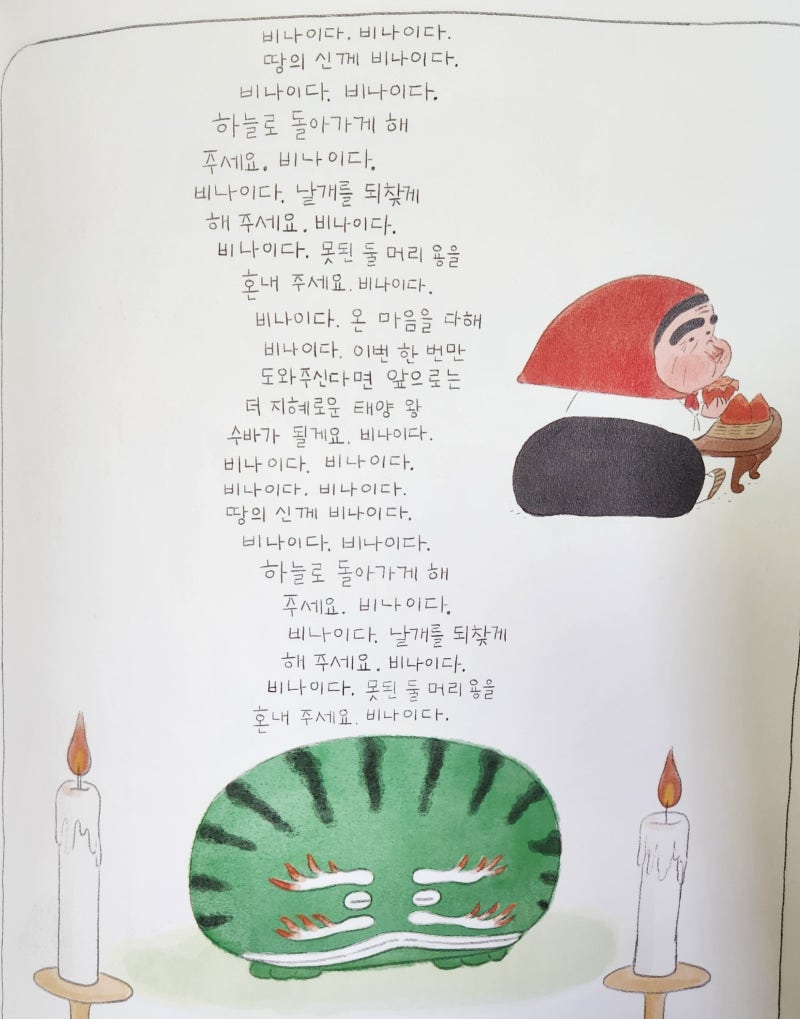 비나이다. 비나이다.
땅의 신께 비나이다.
비나이다. 비나이다.
하늘로 돌아가게 해
주세요. 비나이다.
비나이다. 날개를 되찾게
해 주세요. 비나이다.
비나이다. 못된 둘 머리 용을
혼내 주세요. 비나이다.
비나이다. 온 마음을 다해
비나이다. 이번 한 번만
도와주신다면 앞으로는
더 지혜로운 태양 왕
수바가 될게요. 비나이다.
비나이다. 비나이다.
비나이다. 비나이다.
땅의 신께 비나이다.
비나이다. 비나이다.
하늘로 돌아가게 해
주세요. 비나이다.
비나이다. 날개를 되찾게
해 주세요. 비나이다.
비나이다. 못된 둘 머리 용을
혼내 주세요. 비나이다.